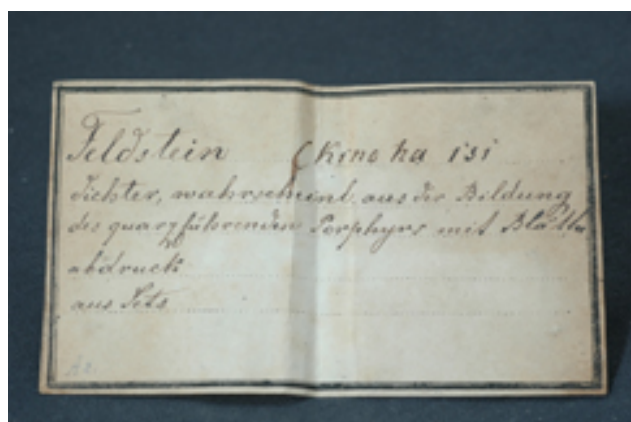 Feldstein (kino ha isi
dichter, wahrscheinl. aus der Bildung
des quarzführenden Porphyrs mit Blätter
abdruck
aus